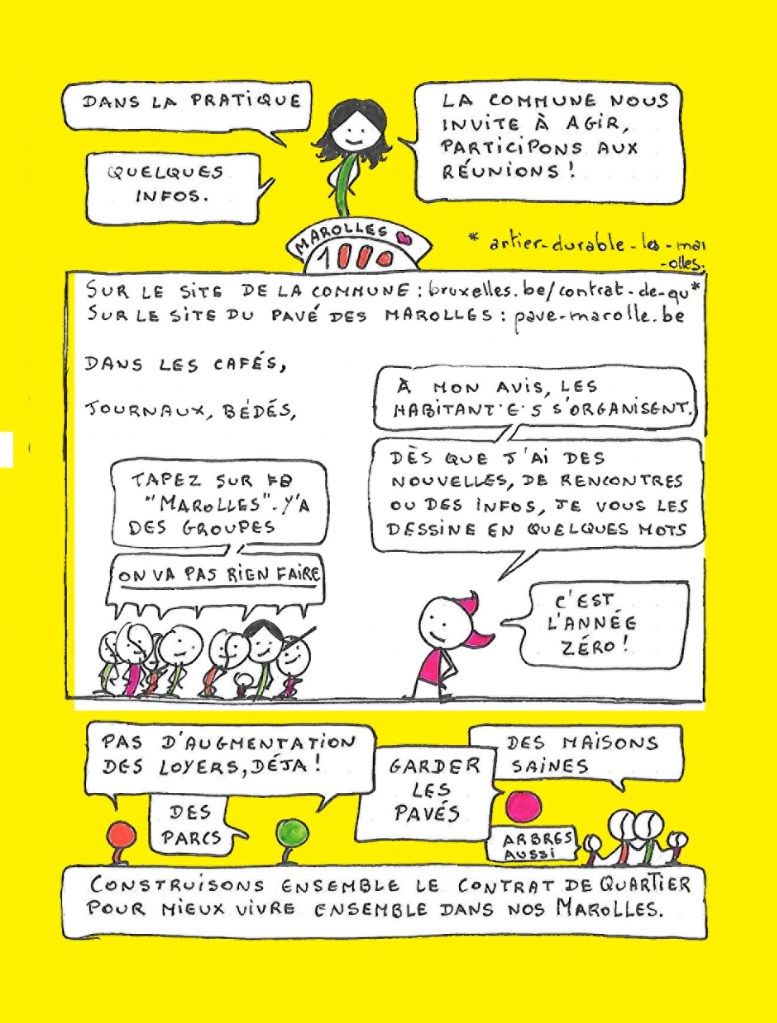 DANS LA PRATIQUE
QUELQUES
INFOS.
LA COMMUNE NOUS
INVITE À AGIR,
PARTICIPONS AUX
RÉUNIONS !
MAROLLES
1000
* artier-durable-les-mar
-olles.
SUR LE SITE DE LA COMMUNE : bruxelles.be/contrat-de-qu*
SUR LE SITE DU PAVÉ DES MAROLLES : pave-marolle.be
DANS LES CAFÉS,
JOURNAUX, BÉDÉS,
À MON AVIS, LES
HABITANT·E·S S'ORGANISENT.
DÈS QUE J'AI DES
NOUVELLES, DE RENCONTRES
OU DES INFOS, JE VOUS LES
DESSINE EN QUELQUES MOTS
TAPEZ SUR FB
"MAROLLES". Y'A
DES GROUPES
ON VA PAS RIEN FAIRE
C'EST
L'ANNÉE
ZÉRO !
PAS D'AUGMENTATION
DES LOYERS, DÉJA !
DES
PARCS
GARDER
LES
PAVÉS
DES MAISONS
SAINES
ARBRES
AUSSI
CONSTRUISONS ENSEMBLE LE CONTRAT DE QUARTIER
POUR MIEUX VIVRE ENSEMBLE DANS NOS MAROLLES.